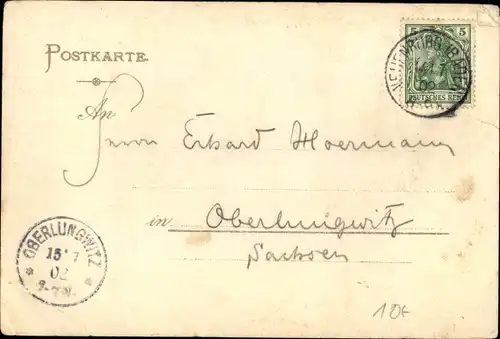 POSTKARTE.
5 5
DEUTSCHES REICH
02
An
Herrn Erhard Hoermann
in Oberlungwitz
Sachsen
OBERLUNGWITZ
15 7
02
10€